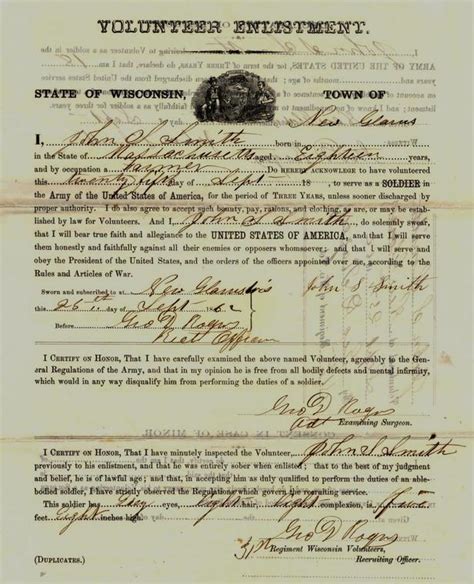 VOLUNTEER ENLISTMENT.
STATE OF WISCONSIN, TOWN OF
New Glarus
I, John S. Smith born
in the State of Massachusetts aged Eighteen years,
and by occupation a Farmer Do HEREBY ACKNOWLEDGE to have volunteered
this twenty Sept 18 , to serve as a SOLDIER in the
Army of the United States of America, for the period of THREE YEARS, unless sooner discharged by
proper authority. I do also agree to accept such bounty, pay, rations, and clothing, as are, or may be,
established by law for Volunteers. And I, John S Smith, do solemnly swear,
that I will bear true faith and allegiance to the UNITED STATES OF AMERICA, and that I will serve
them honestly and faithfully against all their enemies or opposers whomsoever; and that I will observe and
obey the President of the United States, and the orders of the officers appointed over me, according to the
Rules and Articles of War.
Sworn and subscribed to at New Glarus Wis
John S Smith
26th Sept 186
Before Geo D Rogers
Rect Officer
I CERTIFY ON HONOR, That I have carefully examined the above named Volunteer, agreeably to the Gen-
eral Regulations of the Army, and that in my opinion he is free from all bodily defects and mental infirmity,
which would in any way disqualify him from performing the duties of a soldier.
Geo D Rogers
Examining Surgeon.
CONSENT IN CASE OF MINOR
I CERTIFY ON HONOR, That I have minutely inspected the Volunteer, John S Smith
previously to his enlistment, and that he was entirely sober when enlisted; that to the best of my judgment
and belief, he is of lawful age; and that, in accepting him as duly qualified to perform the duties of an able-
bodied soldier, I have strictly observed the Regulations which govern the recruiting service.
This soldier has Grey eyes, Light hair, Light complexion, is five
feet Eight inches high.
Geo D Rogers
31st Regiment Wisconsin Volunteers,
Recruiting Officer.
(DUPLICATES.)